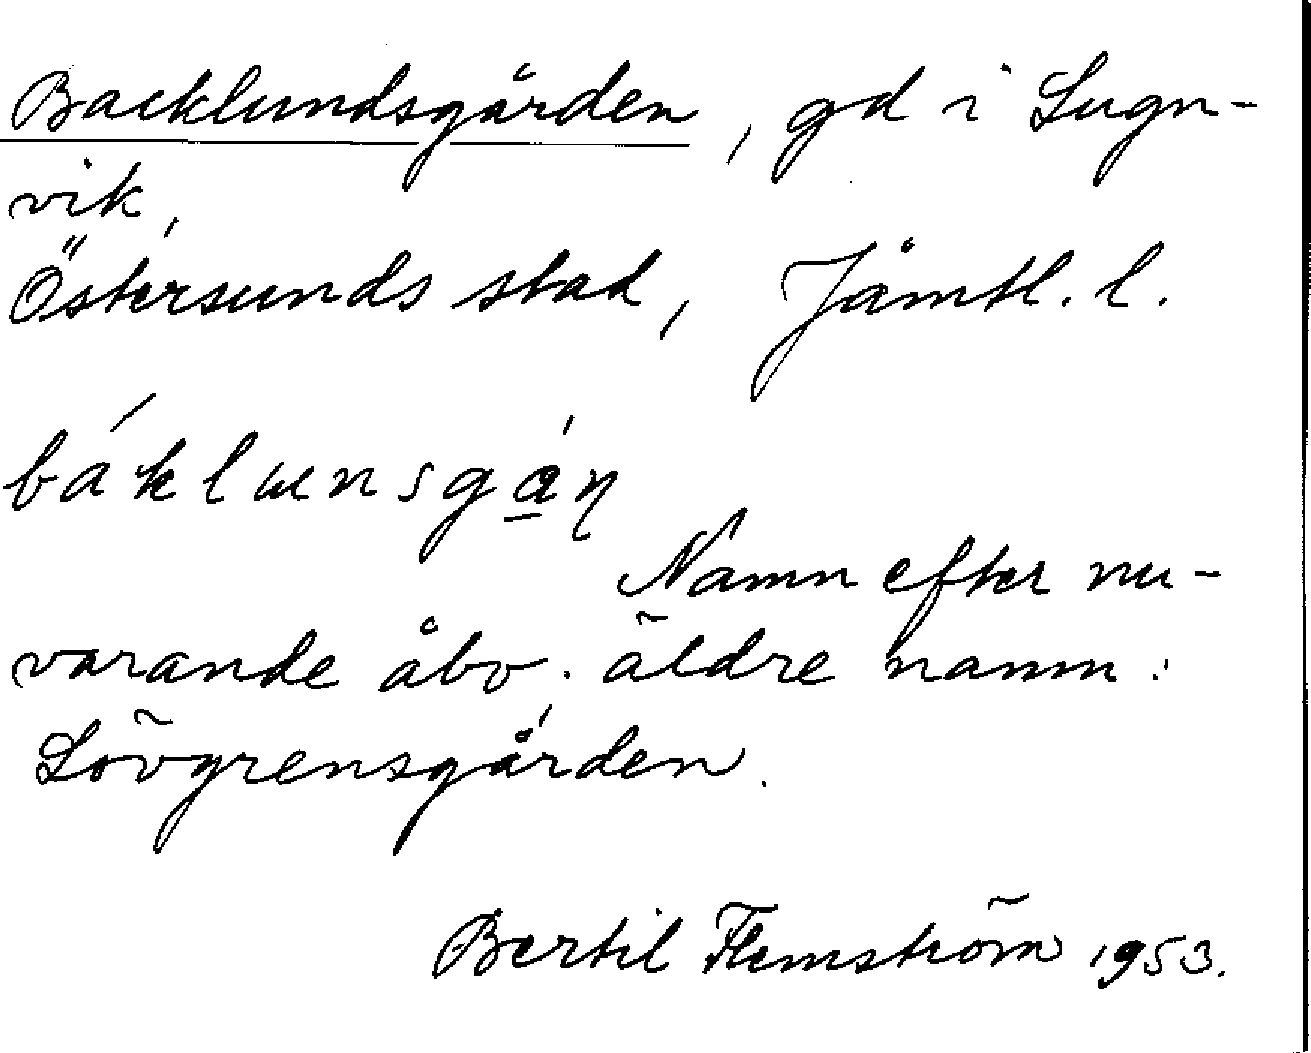 Backlundsgården, gd i Lugn-
vik,
Östersunds stad, Jämtl. l.
báklunsgá̲ṇ
Namn efter nu-
varande åbo; äldre namn:
Lövgrensgården.
Bertil Flemström 1953.